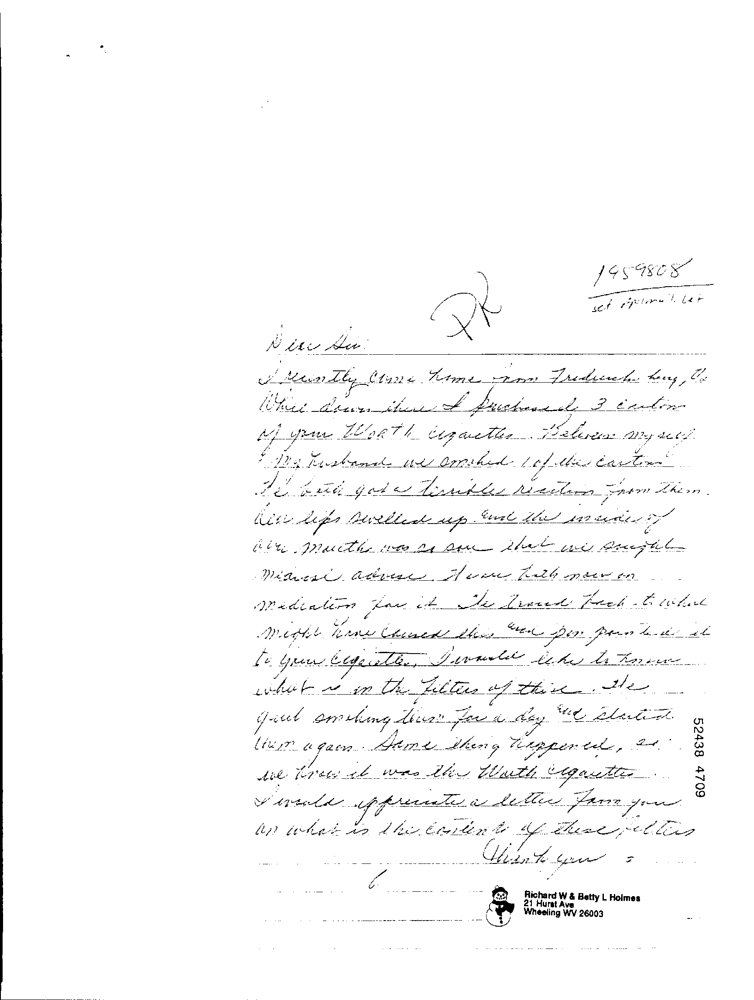 1959808
PK
Dear Sir:
I recently come home from Fredericksburg, Va
While down there I purchased 3 cartons
of your Worth cigarettes. Between myself
& my husband we smoked 1 of the cartons
We both got a terrible reaction from them.
Our lips swelled up and the inside of
our mouth was so sore that we sought
advise. both now on
medication for it. We traced back to what
might have caused this and pin pointed it
to your Cigarettes, I would like to know
what is in the filters of these. We
quit smoking them for a day and started
them again. Same thing happened, so
we knew it was the Worth cigarettes
I would appreciate a letter from you
on what is the content of these filters
Thank you
52438 4709
Richard W & Betty L Holmes
21 Hurst Ave
Wheeling WV 26003